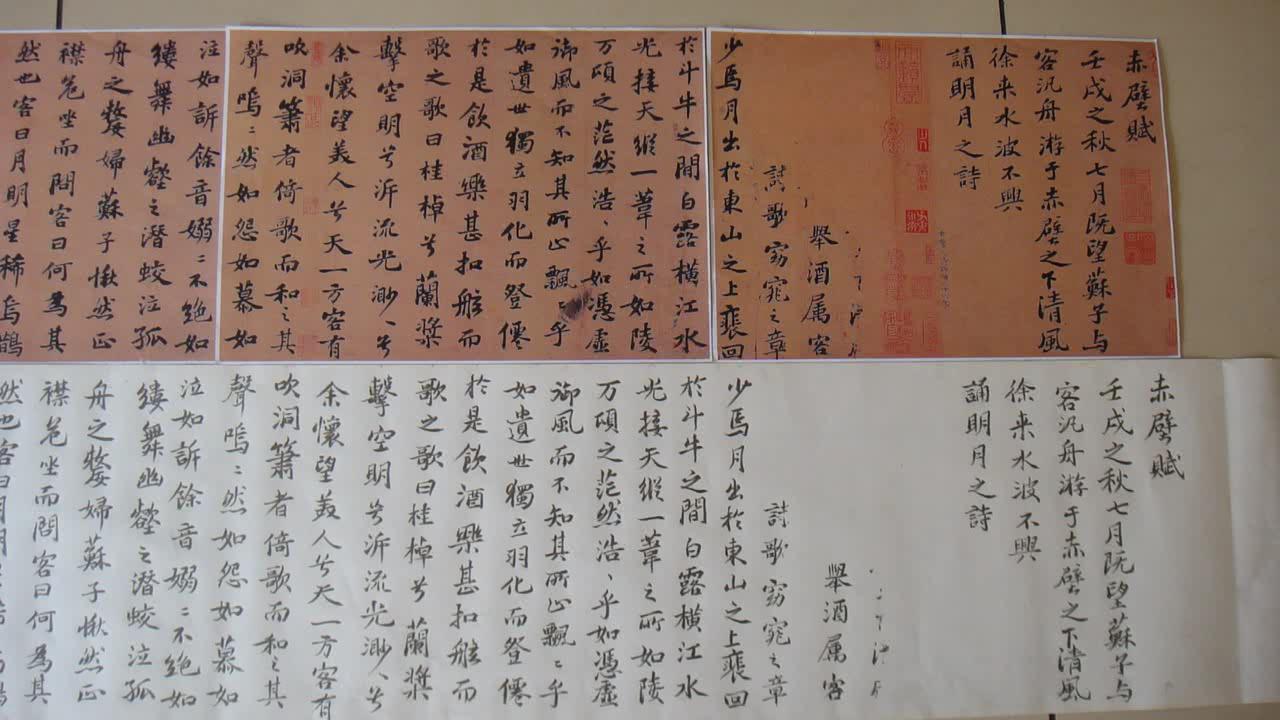 赤壁賦
壬戌之秋七月既望蘇子与
客汎舟游于赤壁之下清風
徐来水波不興
誦明月之詩
舉酒属客
歌窈窕之章
少焉月出於東山之上裵回
於斗牛之間白露横江水
光接天縱一葦之所如陵
万頃之茫然浩〻乎如憑虚
御風而不知其所止飄〻乎
如遺世獨立羽化而登僊
於是飲酒樂甚扣舷而
歌之歌曰桂棹兮蘭槳
擊空明兮泝流光渺〻兮
余懷望美人兮天一方客有
吹洞簫者倚歌而和之其
聲嗚〻然如怨如慕如
泣如訴餘音嫋〻不絶如
縷舞幽壑之潛蛟泣孤
舟之嫠婦蘇子愀然正
襟危坐而問客曰何為其
然也客曰月明星稀烏鵲
赤壁賦
壬戌之秋七月既望蘇子与
客汎舟游于赤壁之下清風
徐来水波不興
誦明月之詩
舉酒属客
歌窈窕之章
少焉月出於東山之上裵回
於斗牛之間白露横江水
光接天縱一葦之所如陵
万頃之茫然浩〻乎如憑虚
御風而不知其所止飄〻乎
如遺世獨立羽化而登僊
於是飲酒樂甚扣舷而
歌之歌曰桂棹兮蘭槳
擊空明兮泝流光渺〻兮
余懷望美人兮天一方客有
吹洞簫者倚歌而和之其
聲嗚〻然如怨如慕如
泣如訴餘音嫋〻不絶如
縷舞幽壑之潛蛟泣孤
舟之嫠婦蘇子愀然正
襟危坐而問客曰何為其
然也客曰月明